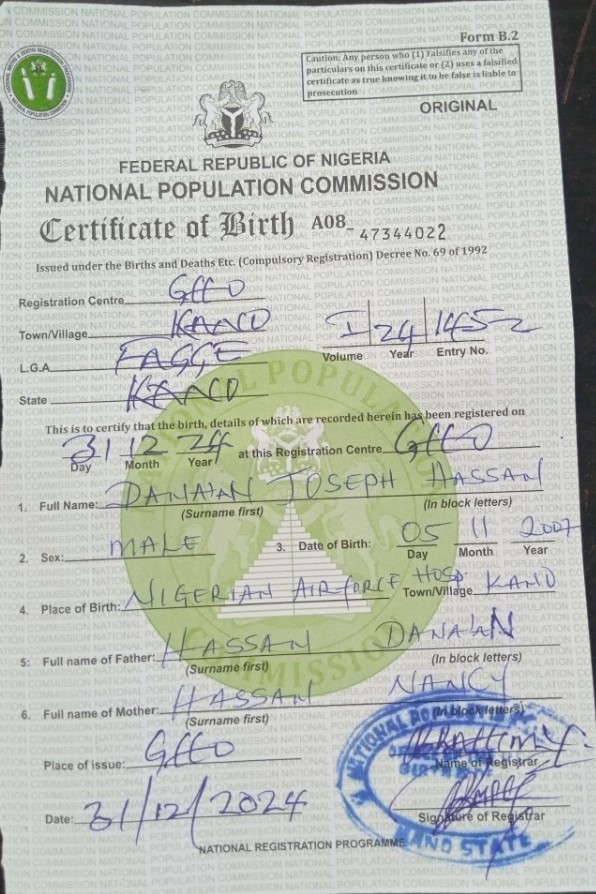 Form B.2
Caution: Any person who (1) Falsifies any of the
particulars on this certificate or (2) uses a falsified
certificate as true knowing it to be false is liable to
prosecution
ORIGINAL
FEDERAL REPUBLIC OF NIGERIA
NATIONAL POPULATION COMMISSION
Certificate of Birth A08- 47344022
Issued under the Births and Deaths Etc. (Compulsory Registration) Decree No. 69 of 1992
Registration Centre
Town/Village KANO
L.G.A FAGGE
I 24 1452
Volume Year Entry No.
State KANO
This is to certify that the birth, details of which are recorded herein has been registered on
31 12 24 at this Registration Centre
Day Month Year
1. Full Name: DANA'AN JOSEPH HASSAN
(Surname first) (In block letters)
2. Sex: MALE 3. Date of Birth: 05 11 2007
Day Month Year
4. Place of Birth: NIGERIAN AIRFORCE HOSP Town/Village KANO
5: Full name of Father: HASSAN DANA'AN
(Surname first) (In block letters)
6. Full name of Mother: HASSAN NANCY
(Surname first) (In block letters)
Place of issue:
Name of Registrar
Date: 31/12/2024
Signature of Registrar
NATIONAL REGISTRATION PROGRAMME
KANO STATE